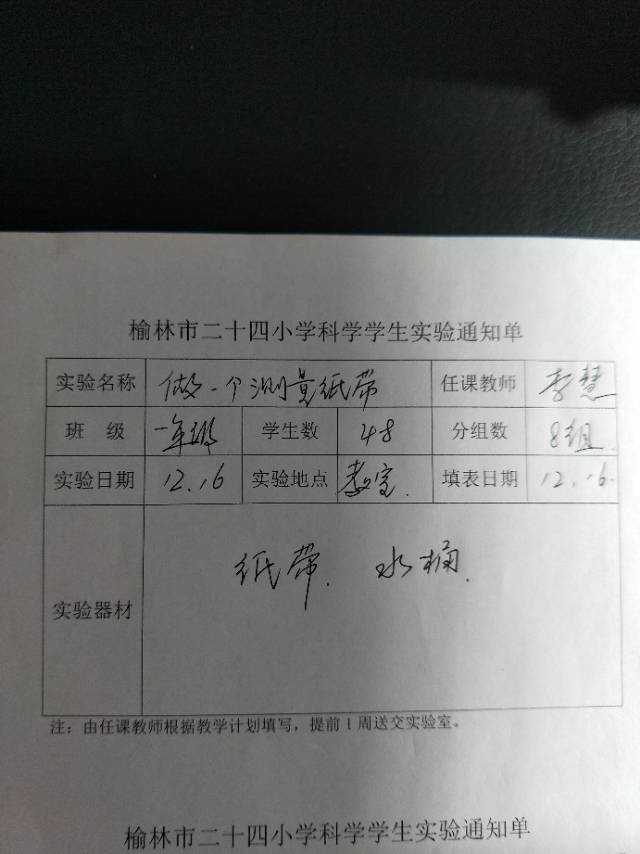 榆林市二十四小学科学学生实验通知单
实验名称 做一个测量纸带 任课教师 李慧
班 级 一年级 学生数 48 分组数 8组.
实验日期 12.16 实验地点 教室. 填表日期 12.16.
实验器材 纸带. 水桶.
注：由任课教师根据教学计划填写，提前1周送交实验室。
榆林市二十四小学科学学生实验通知单